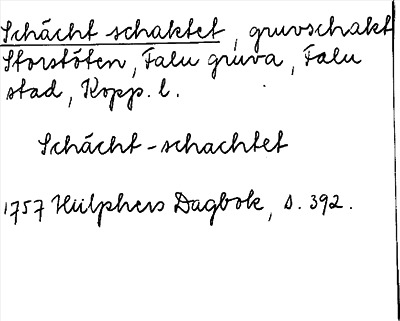 Schächt schaktet, gruvschakt
Storstöten, Falu gruva, Falu
stad, Kopp. l.
Schächt - schachtet
1757 Hülphers Dagbok, s. 392.